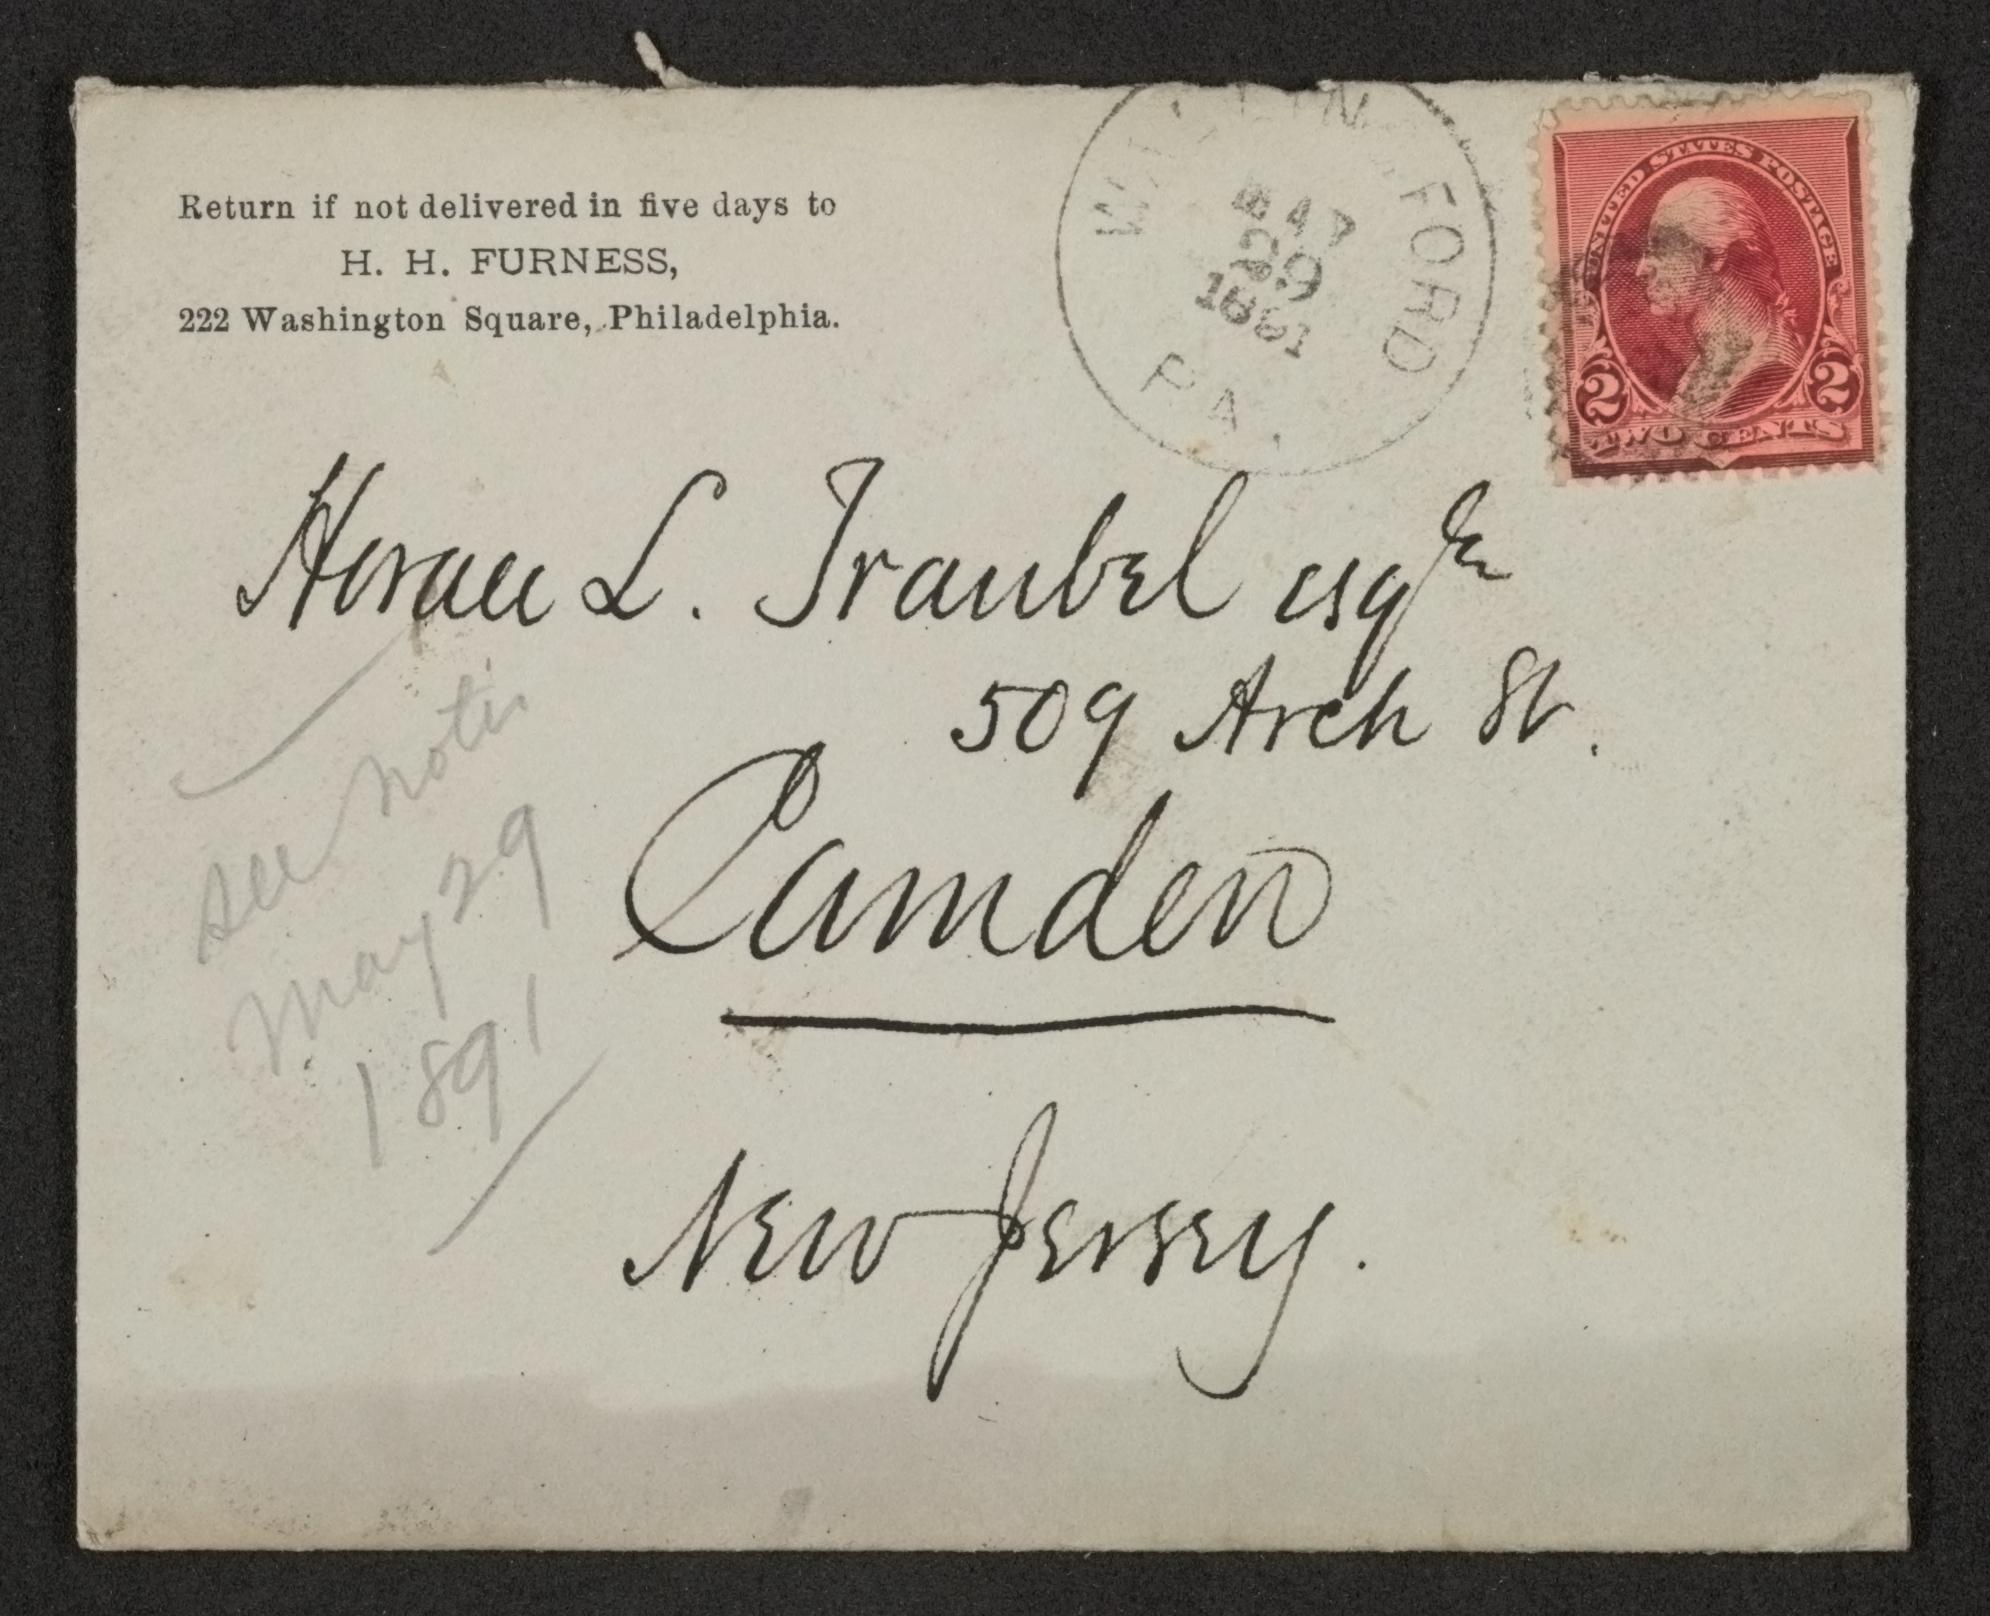 Return if not delivered in five days to
H. H. FURNESS,
222 Washington Square, Philadelphia.
WALLINGFORD
MAY
29
1891
PA.
UNITED STATES POSTAGE
2 2
TWO CENTS
Horace L. Traubel esqre
509 Arch St.
Camden
New Jersey.
see notes
May 29
1891